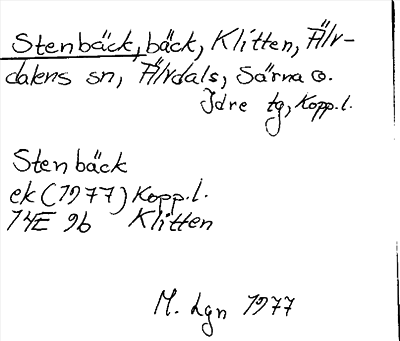 Stenbäck, bäck, Klitten, Älv-
dalens sn, Älvdals, Särna o.
Idre tg, Kopp.l.
Stenbäck
ek (1977) Kopp.l.
14E 9b Klitten
M. Lgn 1977